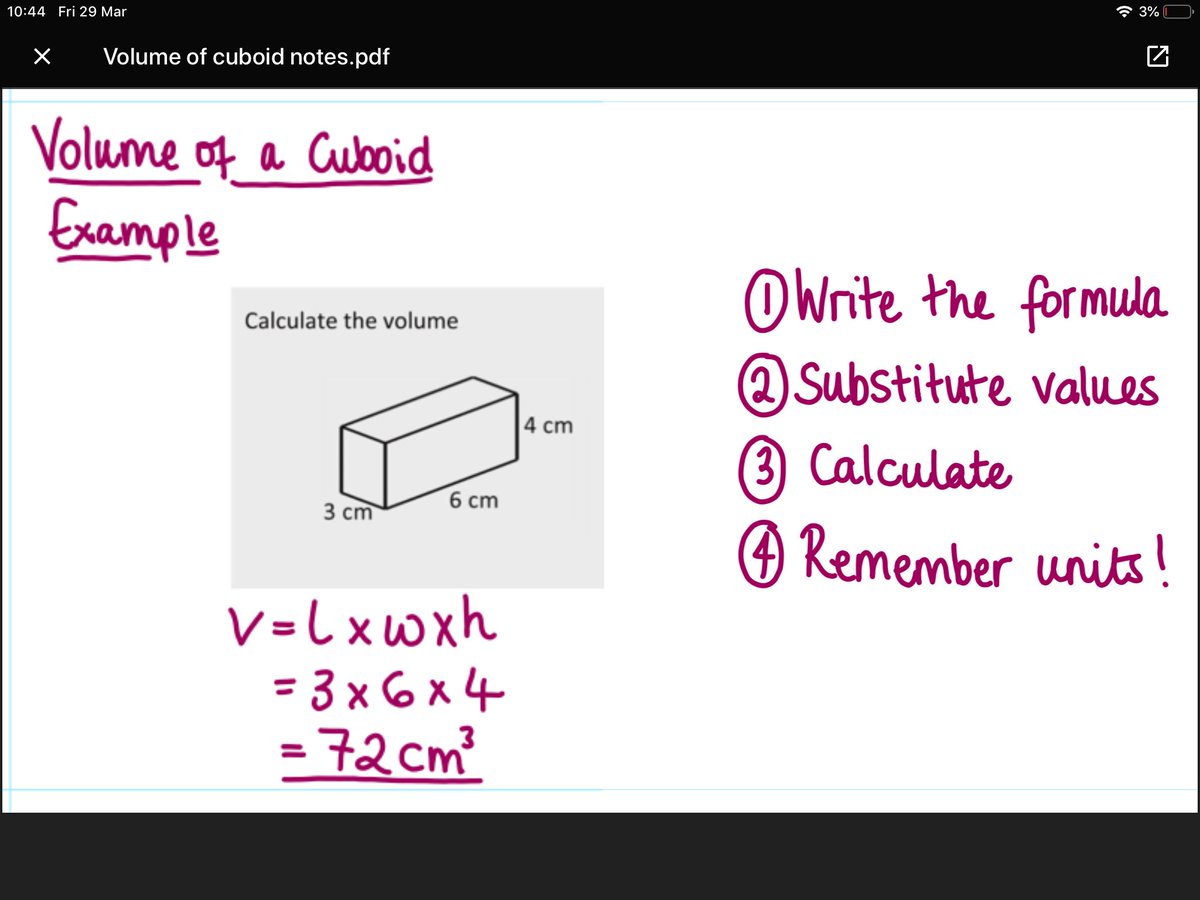 10:44 Fri 29 Mar
3%
Volume of cuboid notes.pdf
Volume of a Cuboid
Example
Calculate the volume
4 cm
6 cm
3 cm
V = l x w x h
= 3 x 6 x 4
= 72 cm³
① Write the formula
② Substitute values
③ Calculate
④ Remember units!